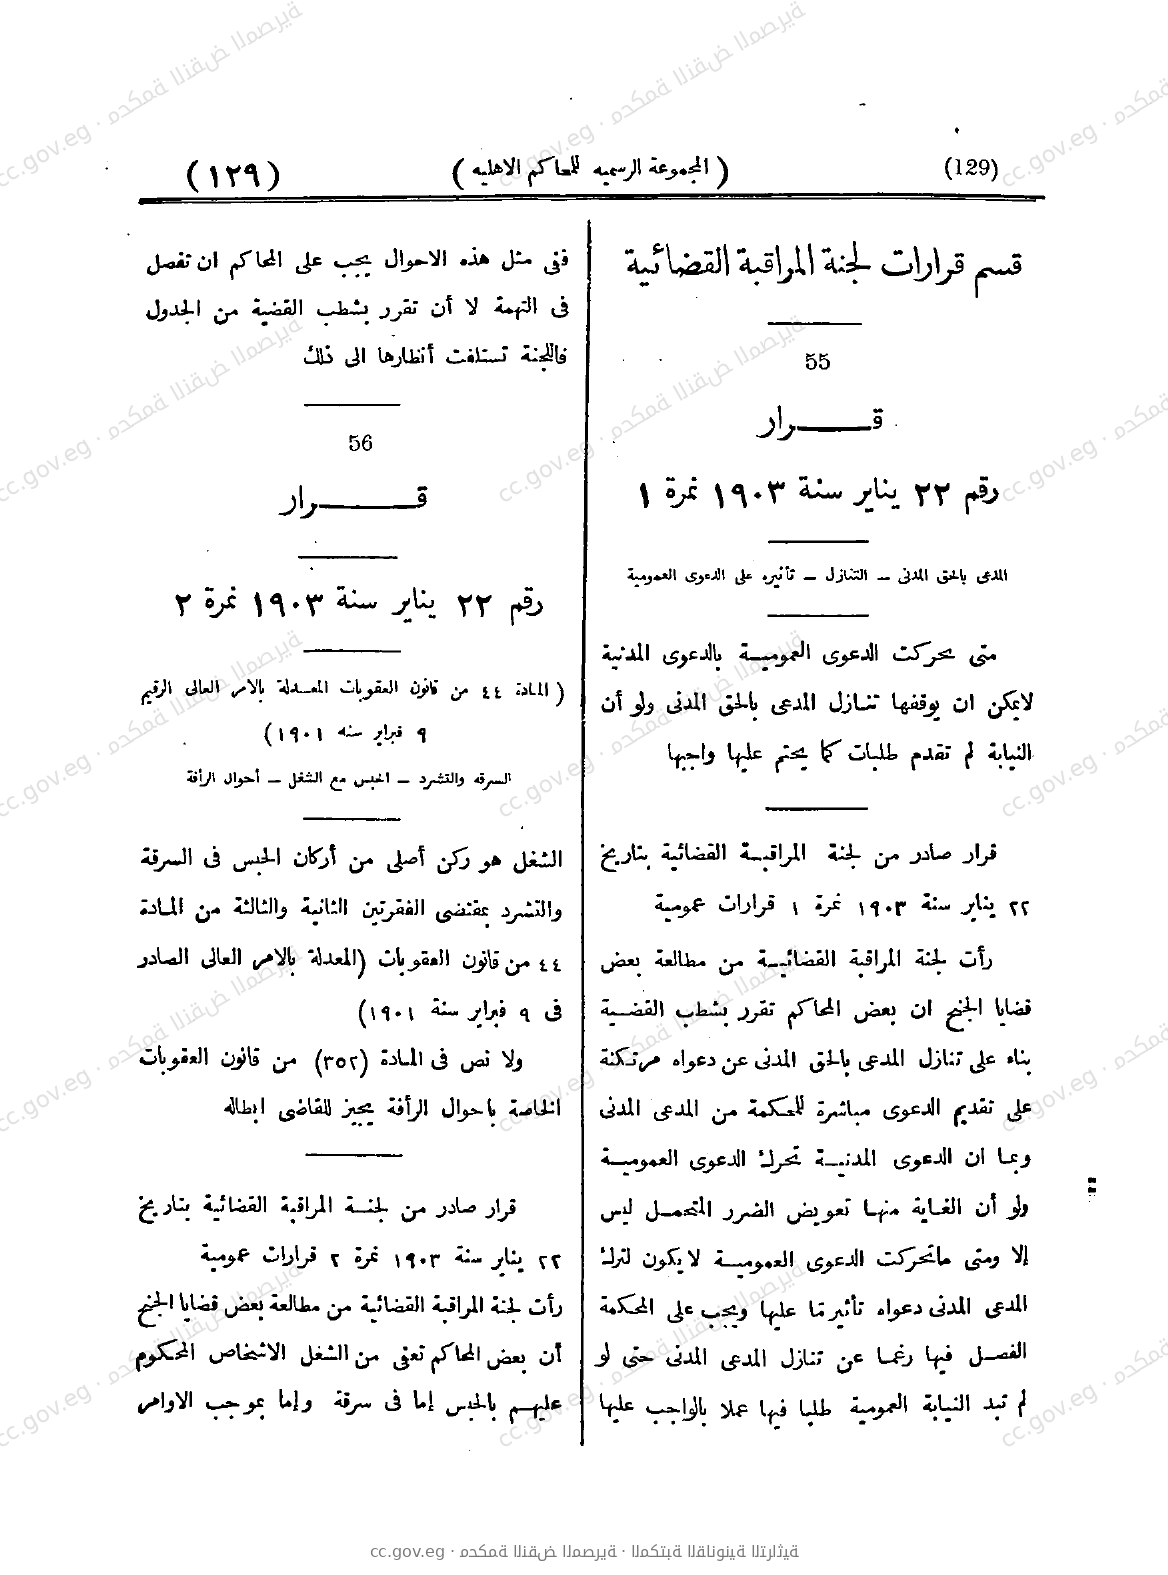 (129)
( المجموعة الرسميه للمحاكم الاهليه )
( ١٢٩ )
قسم قرارات لجنة المراقبة القضائية
55
قــــرار
رقم ٢٢ يناير سنة ١٩٠٣ نمرة ١
المدعى بالحق المدنى – التنازل – تأثيره على الدعوى العمومية
متى تحركت الدعوى العموميــة بالدعوى المدنية
لايمكن ان يوقفها تنــازل المدعى بالحق المدنى ولو أن
النيابة لم تقدم طلبات كما يحتم عليها واجبها
قرار صادر من لجنة المراقبــة القضائية بتاريخ
٢٢ يناير سنة ١٩٠٣ نمرة ١ قرارات عمومية
رأت لجنة المراقبة القضائيــة من مطالعة بعض
قضايا الجنح ان بعض المحاكم تقرر بشطب القضــية
بناء على تنازل المدعى بالحق المدنى عن دعواه مرتكنة
على تقديم الدعوى مباشرة للمحكمة من المدعى المدنى
وبمــا ان الدعوى المدنيــة تحرك الدعوى العموميــة
ولو أن الغــاية منهــا تعويض الضرر المتحمــل ليس
إلا ومتى ماتحركت الدعوى العموميــة لا يكون لترك
المدعى المدنى دعواه تأثير تا عليها ويجب على المحكمة
الفصــل فيها رغمــا عن تنازل المدعى المدنى حتى لو
لم تبد النيابة العمومية طلبا فيها عملا بالواجب عليها
ففى مثل هذه الاحوال يجب على المحاكم ان تفصل
فى التهمة لا أن تقرر بشطب القضية من الجدول
فاللجنة تستلفت أنظارها الى ذلك
56
قــــرار
رقم ٢٢ يناير سنة ١٩٠٣ نمرة ٢
( المادة ٤٤ من قانون العقوبات المعــدلة بالامر العالى الرقيم
٩ فبراير سنه ١٩٠١)
السرقه والتشرد – الحبس مع الشغل – أحوال الرأفة
الشغل هو ركن أصلى من أركان الحبس فى السرقة
والتشرد بمقتضى الفقرتين الثانية والثالثة من المــادة
٤٤ من قانون العقوبات (المعدلة بالامر العالى الصادر
فى ٩ فبراير سنة ١٩٠١)
ولا نص فى المــادة (٣٥٢) من قانون العقوبات
الخاصة باحوال الرأفة يجيز للقاضى ابطاله
قرار صادر من لجنــة المراقبة القضائية بتاريخ
٢٢ يناير سنة ١٩٠٣ نمرة ٢ قرارات عمومية
رأت لجنة المراقبة القضائية من مطالعة بعض قضايا الجنح
أن بعض المحاكم تعفى من الشغل الاشخاص المحكوم
عليهــم بالحبس إما فى سرقة وإما بموجب الاوامر
cc.gov.eg · محكمة النقض المصرية · المكتبة القانونية التراثية